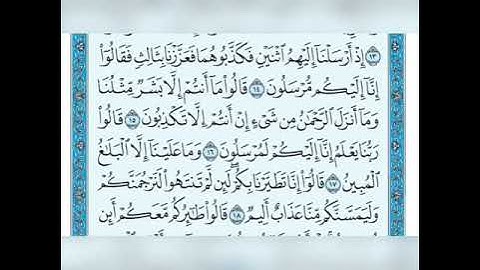 ١٣ إِذْ أَرْسَلْنَآ إِلَيْهِمُ ٱثْنَيْنِ فَكَذَّبُوهُمَا فَعَزَّزْنَا بِثَالِثٍ فَقَالُوٓا۟
إِنَّآ إِلَيْكُم مُّرْسَلُونَ ١٤ قَالُوا۟ مَآ أَنتُمْ إِلَّا بَشَرٌ مِّثْلُنَا
وَمَآ أَنزَلَ ٱلرَّحْمَٰنُ مِن شَىْءٍ إِنْ أَنتُمْ إِلَّا تَكْذِبُونَ ١٥ قَالُوا۟
رَبُّنَا يَعْلَمُ إِنَّآ إِلَيْكُمْ لَمُرْسَلُونَ ١٦ وَمَا عَلَيْنَآ إِلَّا ٱلْبَلَٰغُ
ٱلْمُبِينُ ١٧ قَالُوٓا۟ إِنَّا تَطَيَّرْنَا بِكُمْ لَئِن لَّمْ تَنتَهُوا۟ لَنَرْجُمَنَّكُمْ
وَلَيَمَسَّنَّكُم مِّنَّا عَذَابٌ أَلِيمٌ ١٨ قَالُوا۟ طَٰٓئِرُكُم مَّعَكُمْ أَئِن